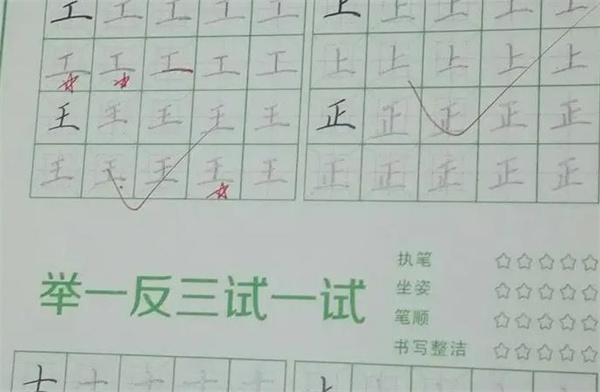 工 工 工 工 工
工 工 工 工 工
王 王 王 王 王
王 王 王 王 王
上 上 上 上 上
上 上 上 上 上
正 正 正 正 正
正 正 正 正 正
举一反三试一试
执笔 ☆☆☆☆☆
坐姿 ☆☆☆☆☆
笔顺 ☆☆☆☆☆
书写整洁 ☆☆☆☆☆
土 土 土 土 土